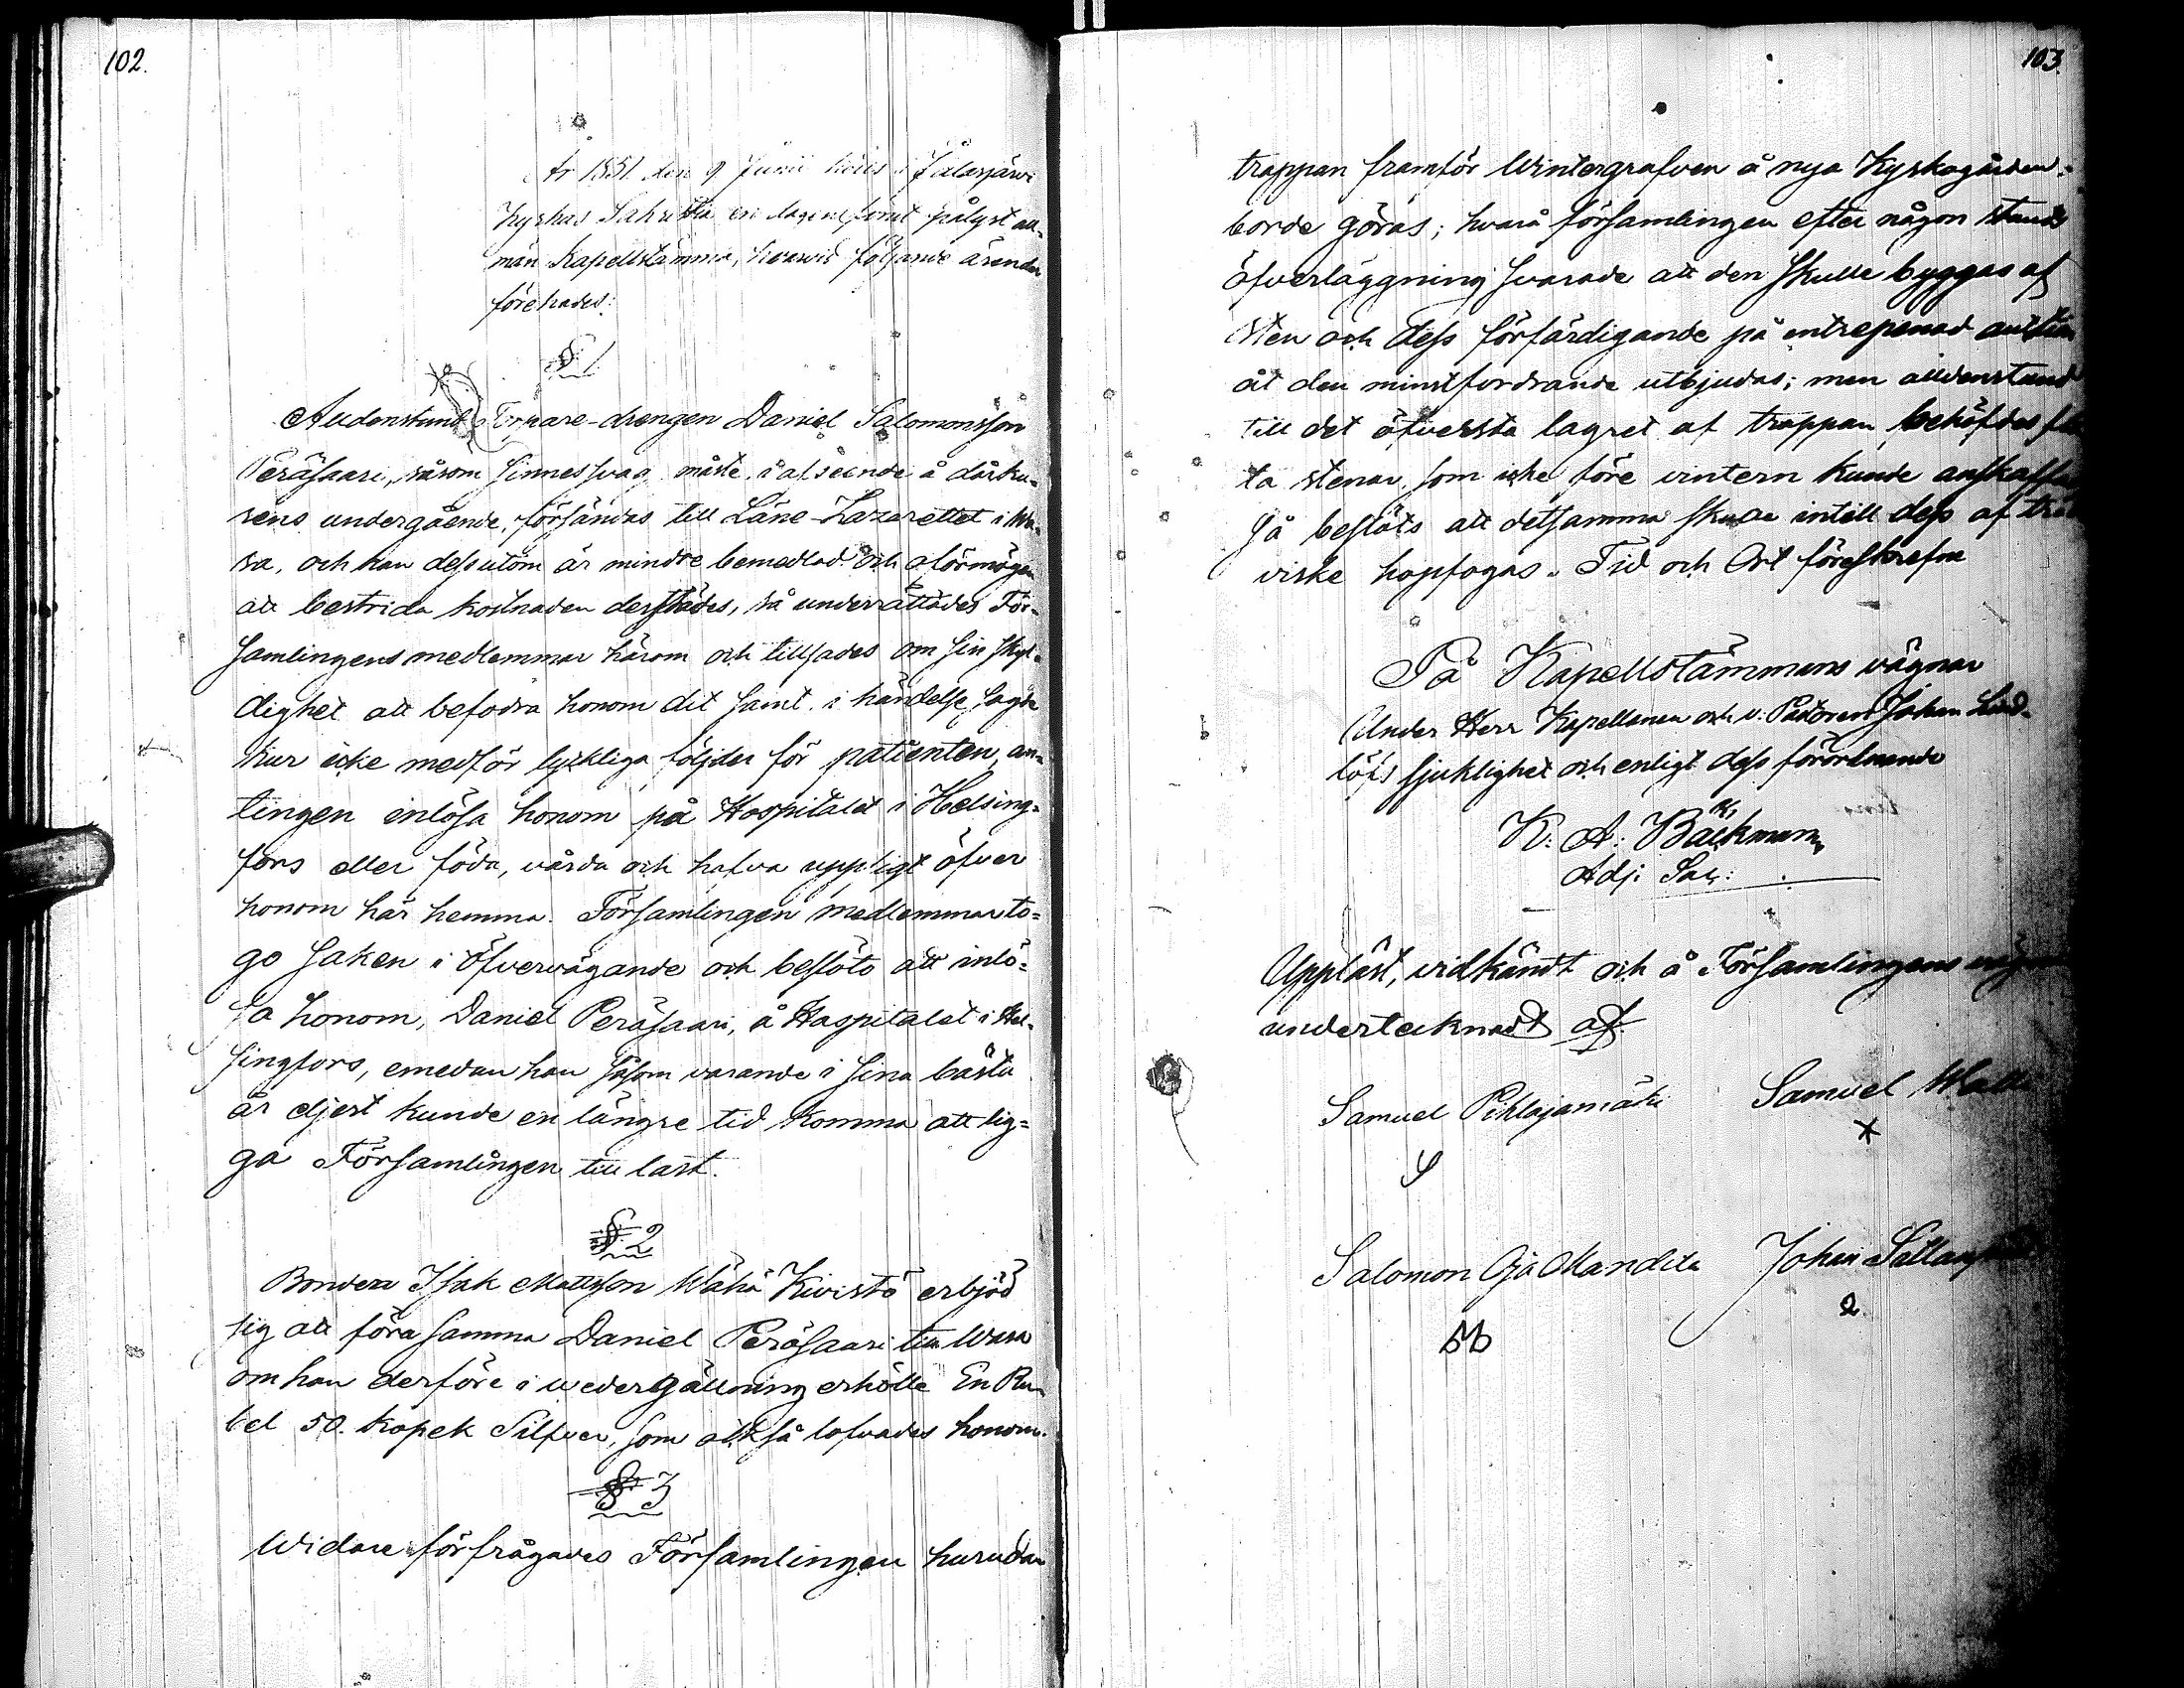 102.
År 1851 den 9 Junii hölls i Jalasjärvi
Kyrkas Sakristia en lagenligt pålyst all-
män Kapellstämma, hvarvid följande ärender
förehades:
§ 1
Alldenstund Torpare-drengen Daniel Salomonsson
Peräsaari, såsom sinnessvag måste, i afseende å dårku-
rens undergående, försändas till Läne-Lazarettet i Wa-
sa, och han dessutom är mindre bemedlad och oförmögen
att bestrida kostnaden derstädes, så underrättades För-
samlingens medlemmar härom och tillsades om sin skyl-
dighet att befodra honom dit samt i händelse sagde
Kur icke medför lyckliga följder för patienten, an-
tingen inlösa honom på Hospitalet i Helsing-
fors eller föda, vårda och hafva uppsigt öfver
honom här hemma. Församlingen medlemmar to-
go saken i öfvervägande och beslöto att inlö-
sa honom, Daniel Peräsaari, å Hospitalet i Hel-
singfors, emedan han såsom varande i sina bästa
år eljest kunde en längre tid komma att lig-
ga Församlingen till last.
§ 2
Bonden Isak Mattsson Wähä Kivistö erbjöd
sig att föra samma Daniel Peräsaari till Wasa
om han derföre i wedergällning erhölle En Ru-
bel 50. kopek Silfver, som ock så lofvades honom.
§ 3
Widare förfrågades Församlingen hurudan
103.
trappan framför Wintergrafven å nya Kyrkogården
borde göras; hvarå församlingen efter någon stunds
öfverläggning svarade att den skulle byggas af
sten och dess förfärdigande på entrepenad
åt den minstfordrande utbjudas; men alldenstund
till det öfversta lagret af trappan behöfdes fla
ta stenar, som icke före vintern kunde anskaffas
så beslöts att detsamma skulle intill dess af trä
virke hopfogas. Tid och Ort föreskrefne
På Kapellstämmans vägnar
Under Herr Kapellanen och v. Pastoren Johan Lind-
löfs sjuklighet och enligt dess förordnande
K: A: Bäckman
Adj: Sac:
Uppläst, vidkändt och å Församlingens vägnar
undertecknadt af
Samuel Pihlajamäki Samuel
Salomon Oja Mandila Johan